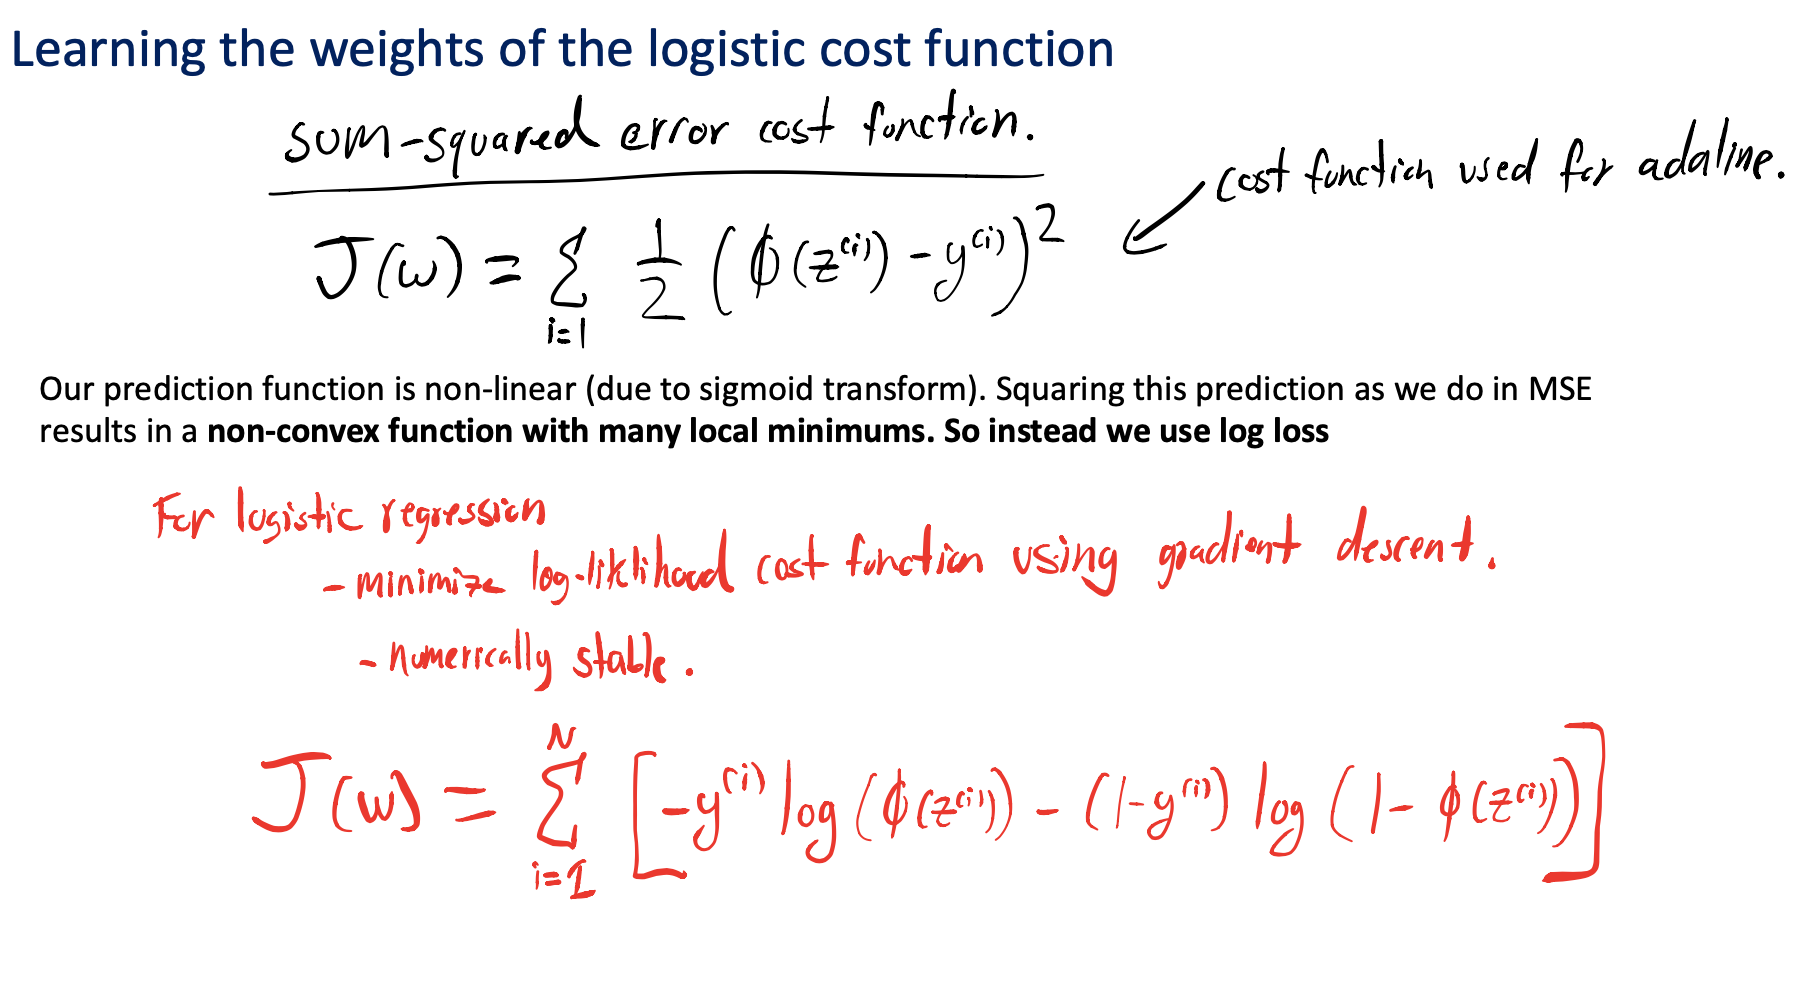 Learning the weights of the logistic cost function
sum-squared error cost function.
cost function used for adaline.
J(w) = Σ i=1 1/2 (φ(z⁽ⁱ⁾) - y⁽ⁱ⁾)²
Our prediction function is non-linear (due to sigmoid transform). Squaring this prediction as we do in MSE
results in a non-convex function with many local minimums. So instead we use log loss
For logistic regression
- minimize log-liklihood cost function using gradient descent.
- numerically stable.
J(w) = Σ i=1 N [-y⁽ⁱ⁾ log(φ(z⁽ⁱ⁾)) - (1-y⁽ⁱ⁾) log(1- φ(z⁽ⁱ⁾))]